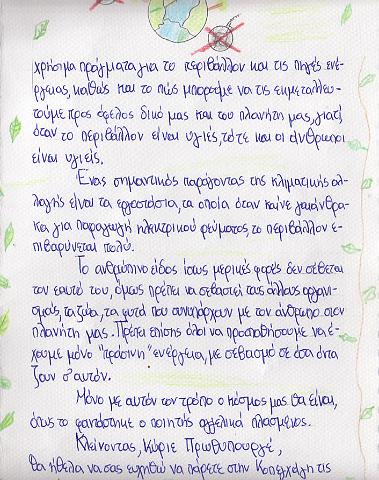 χρήσιμα πράγματα για το περιβάλλον και τις πηγές ενέρ-
γειας, καθώς και το πώς μπορούμε να τις εκμεταλλευ-
τούμε προς όφελος δικό μας και του πλανήτη μας, γιατί
όταν το περιβάλλον είναι υγιές, τότε και οι άνθρωποι
είναι υγιείς.
Ένας σημαντικός παράγοντας της κλιματικής αλ-
λαγής είναι τα εργοστάσια, τα οποία όταν καίνε γαιάνθρα-
κα, για παραγωγή ηλεκτρικού ρεύματος, το περιβάλλον ε-
πιβαρύνεται πολύ.
Το ανθρώπινο είδος ίσως μερικές φορές δεν σέβεται
τον εαυτό του, όμως πρέπει να σεβαστεί τους άλλους οργανι-
σμούς, τα ζώα, τα φυτά που συνυπάρχουν με τον άνθρωπο στον
πλανήτη μας. Πρέπει επίσης όλοι να προσπαθήσουμε να έ-
χουμε μόνο "πράσινη" ενέργεια, με σεβασμό σε όσα όντα
ζουν σ' αυτόν.
Μόνο με αυτόν τον τρόπο ο κόσμος μας θα είναι,
όπως το φαντάστηκε ο ποιητής αγγελικά πλασμένος.
Κλείνοντας, Κύριε Πρωθυπουργέ,
θα ήθελα να σας ευχηθώ να πάρετε στην Κοπεγχάγη τις